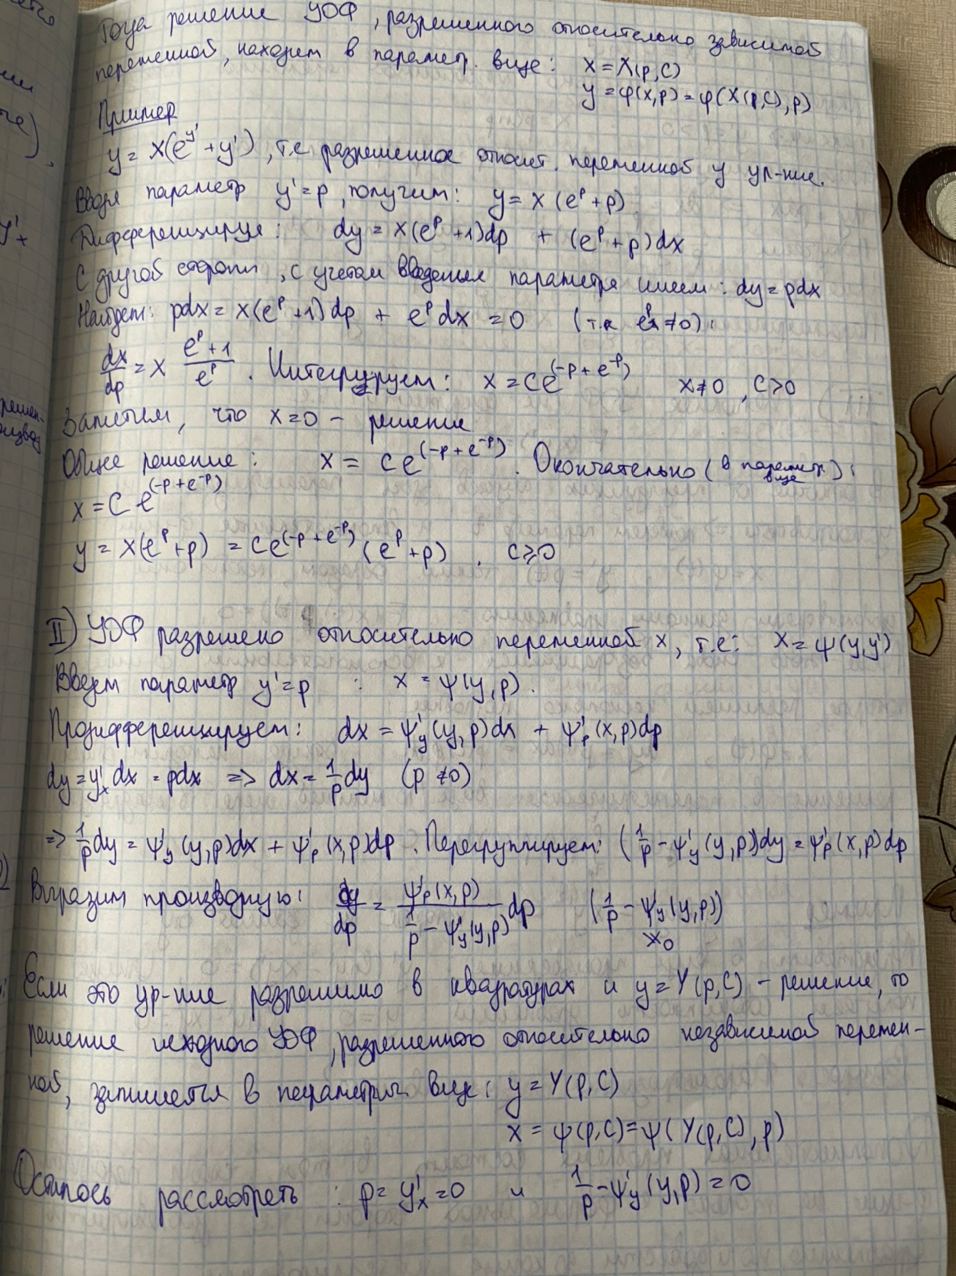 Тогда решение УОФ, разрешенного относительно зависимой
переменной, находим в парамет. виде: x = X(p,C)
y = φ(x,p) = φ(X(p,C),p)
Пример
y = x(e^y' + y'), т.е. разрешенное относит. переменной y ур-ние.
Введя параметр y'=p, получим: y = x(e^p + p)
Дифференцируя: dy = x(e^p + 1)dp + (e^p + p)dx
С другой стороны, с учетом введения параметра имеем: dy = pdx
Найдем: pdx = x(e^p + 1)dp + e^p dx = 0 (т.к. e^p ≠ 0):
dx/dp = x (e^p + 1)/e^p. Интегрируем: x = Ce^(-p + e^-p) x ≠ 0, C > 0
Заметим, что x = 0 - решение
Общее решение: x = Ce^(-p + e^-p). Окончательно (в парамет. виде):
x = Ce^(-p + e^-p)
y = x(e^p + p) = Ce^(-p + e^-p) (e^p + p), C ≥ 0
II) УОФ разрешено относительно переменной x, т.е.: x = ψ(y,y')
Введем параметр y'=p : x = ψ(y,p).
Продифференцируем: dx = ψ'y(y,p)dx + ψ'p(x,p)dp
dy = y'x dx = pdx => dx = 1/p dy (p ≠ 0)
=> 1/p dy = ψ'y(y,p)dx + ψ'p(x,p)dp. Перегруппируем: (1/p - ψ'y(y,p))dy = ψ'p(x,p)dp
Выразим производную: dy/dp = ψ'p(x,p)/(1/p - ψ'y(y,p)) dp (1/p - ψ'y(y,p)) ≠ 0
Если это ур-ние разрешимо в квадратурах и y = Y(p,C) - решение, то
решение исходного УОФ, разрешенного относительно независимой перемен-
ной, запишется в параметрич. виде: y = Y(p,C)
x = ψ(p,C) = ψ(Y(p,C),p)
Осталось рассмотреть: p = y'x = 0 и 1/p - ψ'y(y,p) = 0